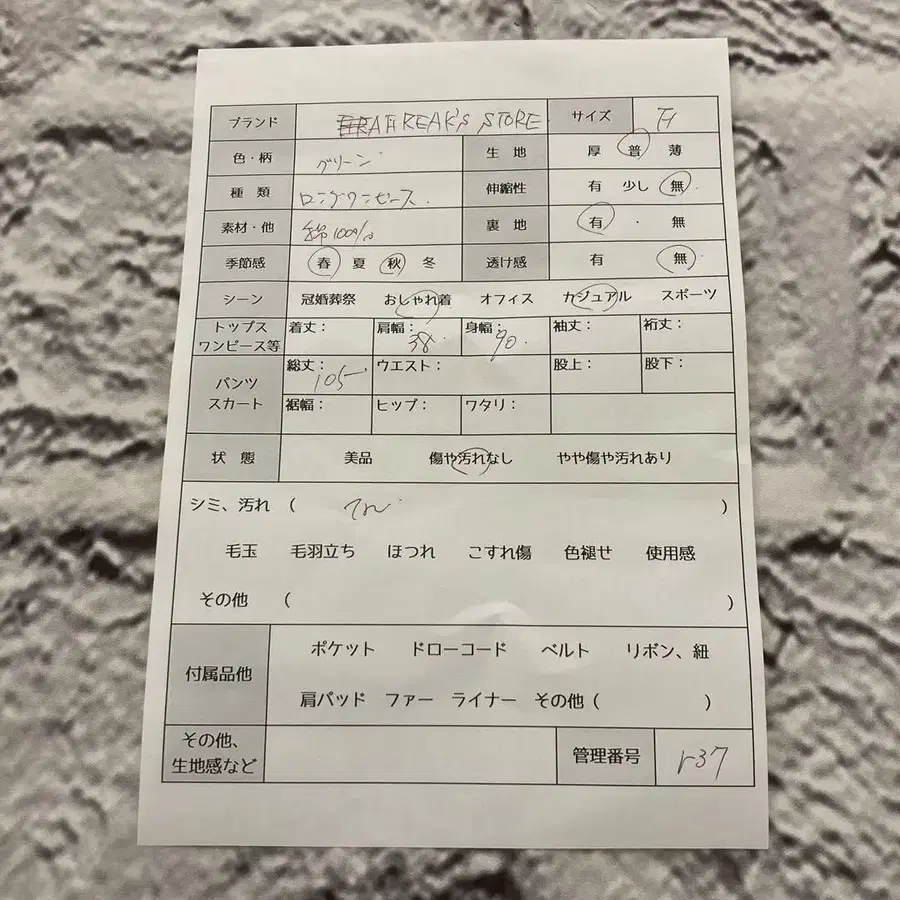 ブランド FREAK'S STORE サイズ F
色・柄 グリーン 生 地 厚 普 薄
種 類 ロングワンピース. 伸縮性 有 少し 無
素材・他 綿100% 裏 地 有 ・ 無
季節感 春 夏 秋 冬 透け感 有 無
シーン 冠婚葬祭 おしゃれ着 オフィス カジュアル スポーツ
トップス
ワンピース等 着丈： 肩幅： 38. 身幅： 90. 袖丈： 裄丈：
パンツ
スカート 総丈： 105 ウエスト： 股上： 股下：
裾幅： ヒップ： ワタリ：
状 態 美品 傷や汚れなし やや傷や汚れあり
シミ、汚れ ( )
毛玉 毛羽立ち ほつれ こすれ傷 色褪せ 使用感
その他 ( )
付属品他 ポケット ドローコード ベルト リボン、紐
肩パッド ファー ライナー その他 ( )
その他、
生地感など 管理番号 r37